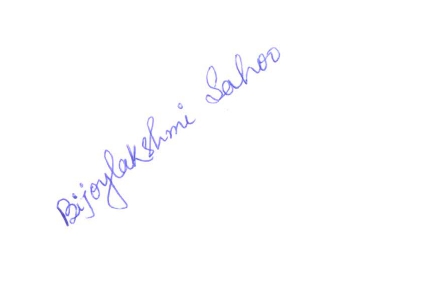 Bijoylakshmi Sahoo